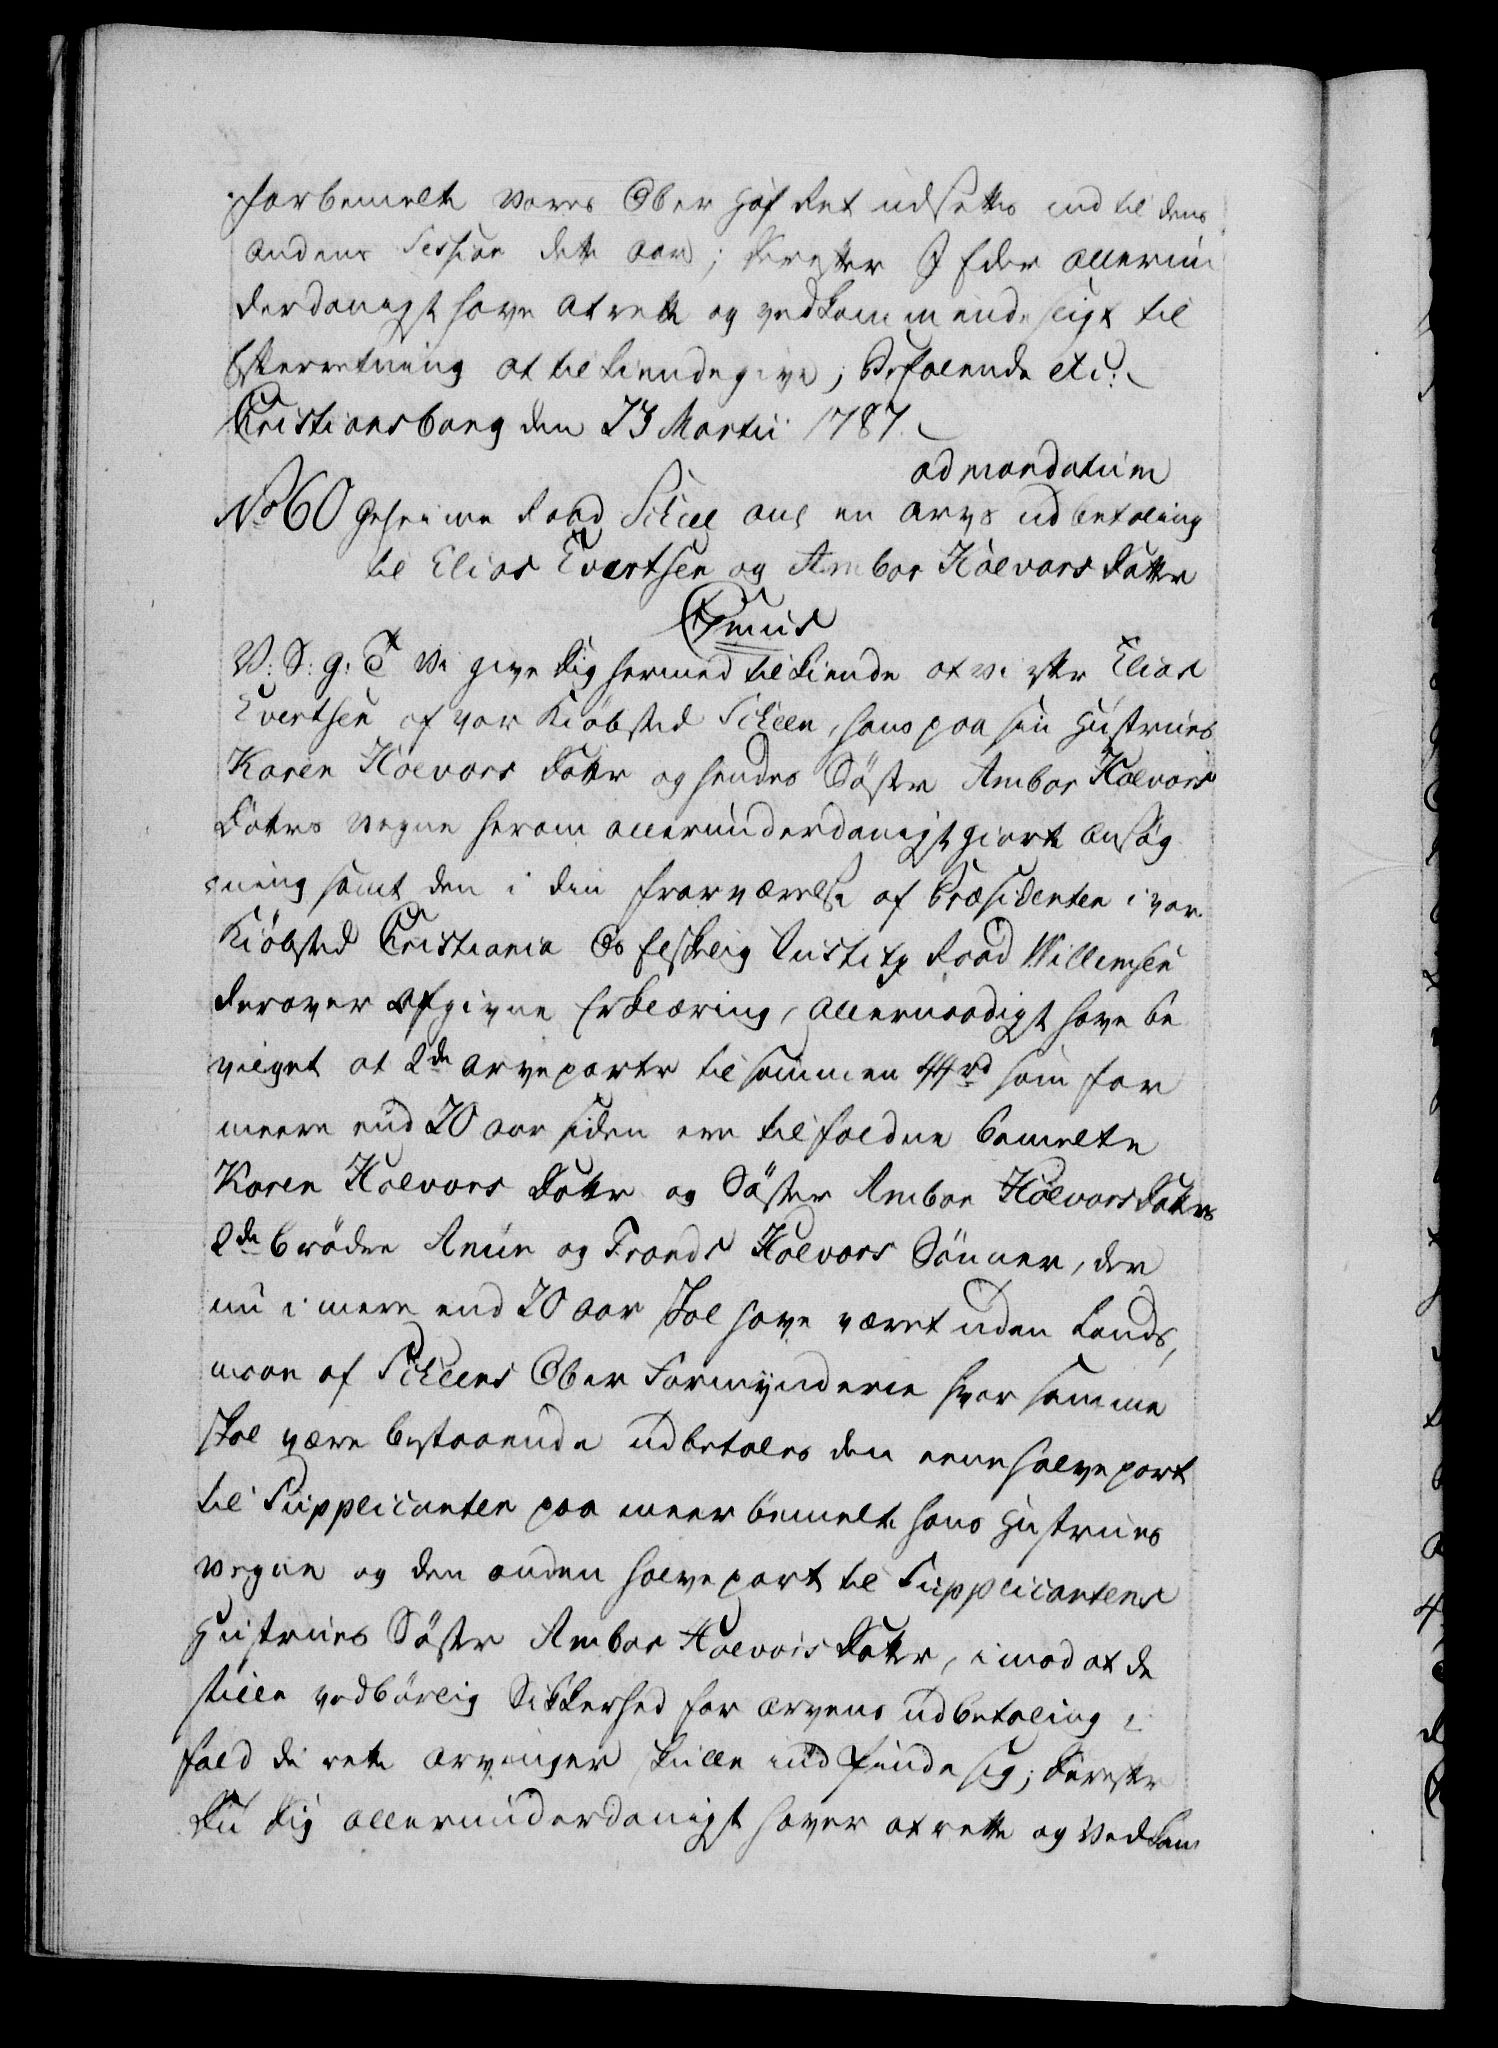 forbemelte Vores Ober Hof Ret udsættes indtil dens
anden Session dette Aar; Derefter I Eder allerun
derdanigst have at rette og vedkommende sligt til
Efterretning at tilkiendegive; Befalende etc:
Cristiansborg den 23 Martii 1787.
ad mandatum
No 60 Geheime Raad Scheel ang en Arvs udbetaling
til Elias Evertsen og Ambor Halvors Datter
C 7mus
V: S: g: T Vi give dig hermed tilkiende at vi efter Elias
Evertsen af vor Kiöbsted Scheen, hans paa sin Hustrues
Karen Halvors Datter og hendes Söster Ambor Halvors
Datters vegne herom allerunderdanigst giorte Ansög
ning samt den i din fraværelse af Præsidenten i vor
Kiöbsted Cristiania Os Elskelig Justitz Raad Willemsen
derover afgivne Erklæring, allernaadigst have be
vilget at 2de Arveparter tilsammen 44 rd som for
meere end 20 aar siden ere tilfaldne bemelte
Karen Halvors Datter og Söster Ambor Halvors Datters
2de brödre Anun og Trond Halvors Sönner, der
nu i mere end 20 Aar skal have været uden Lands,
maae af Scheens Ober Formynderie hvor samme
skal være bestaaende udbetales den eene halve part
til Supplicanten paa meerbemelte hans Hustrues
vegne og den anden halve part til Supplicantens
Hustrues Söster Ambor Halvors Datter, imod at de
stille vedbörlig Sikkerhed for arvens udbetaling i
fald de rette arvinger skulle indfinde sig; Derefter
Du dig allerunderdanigst haver at rette og Vedkom